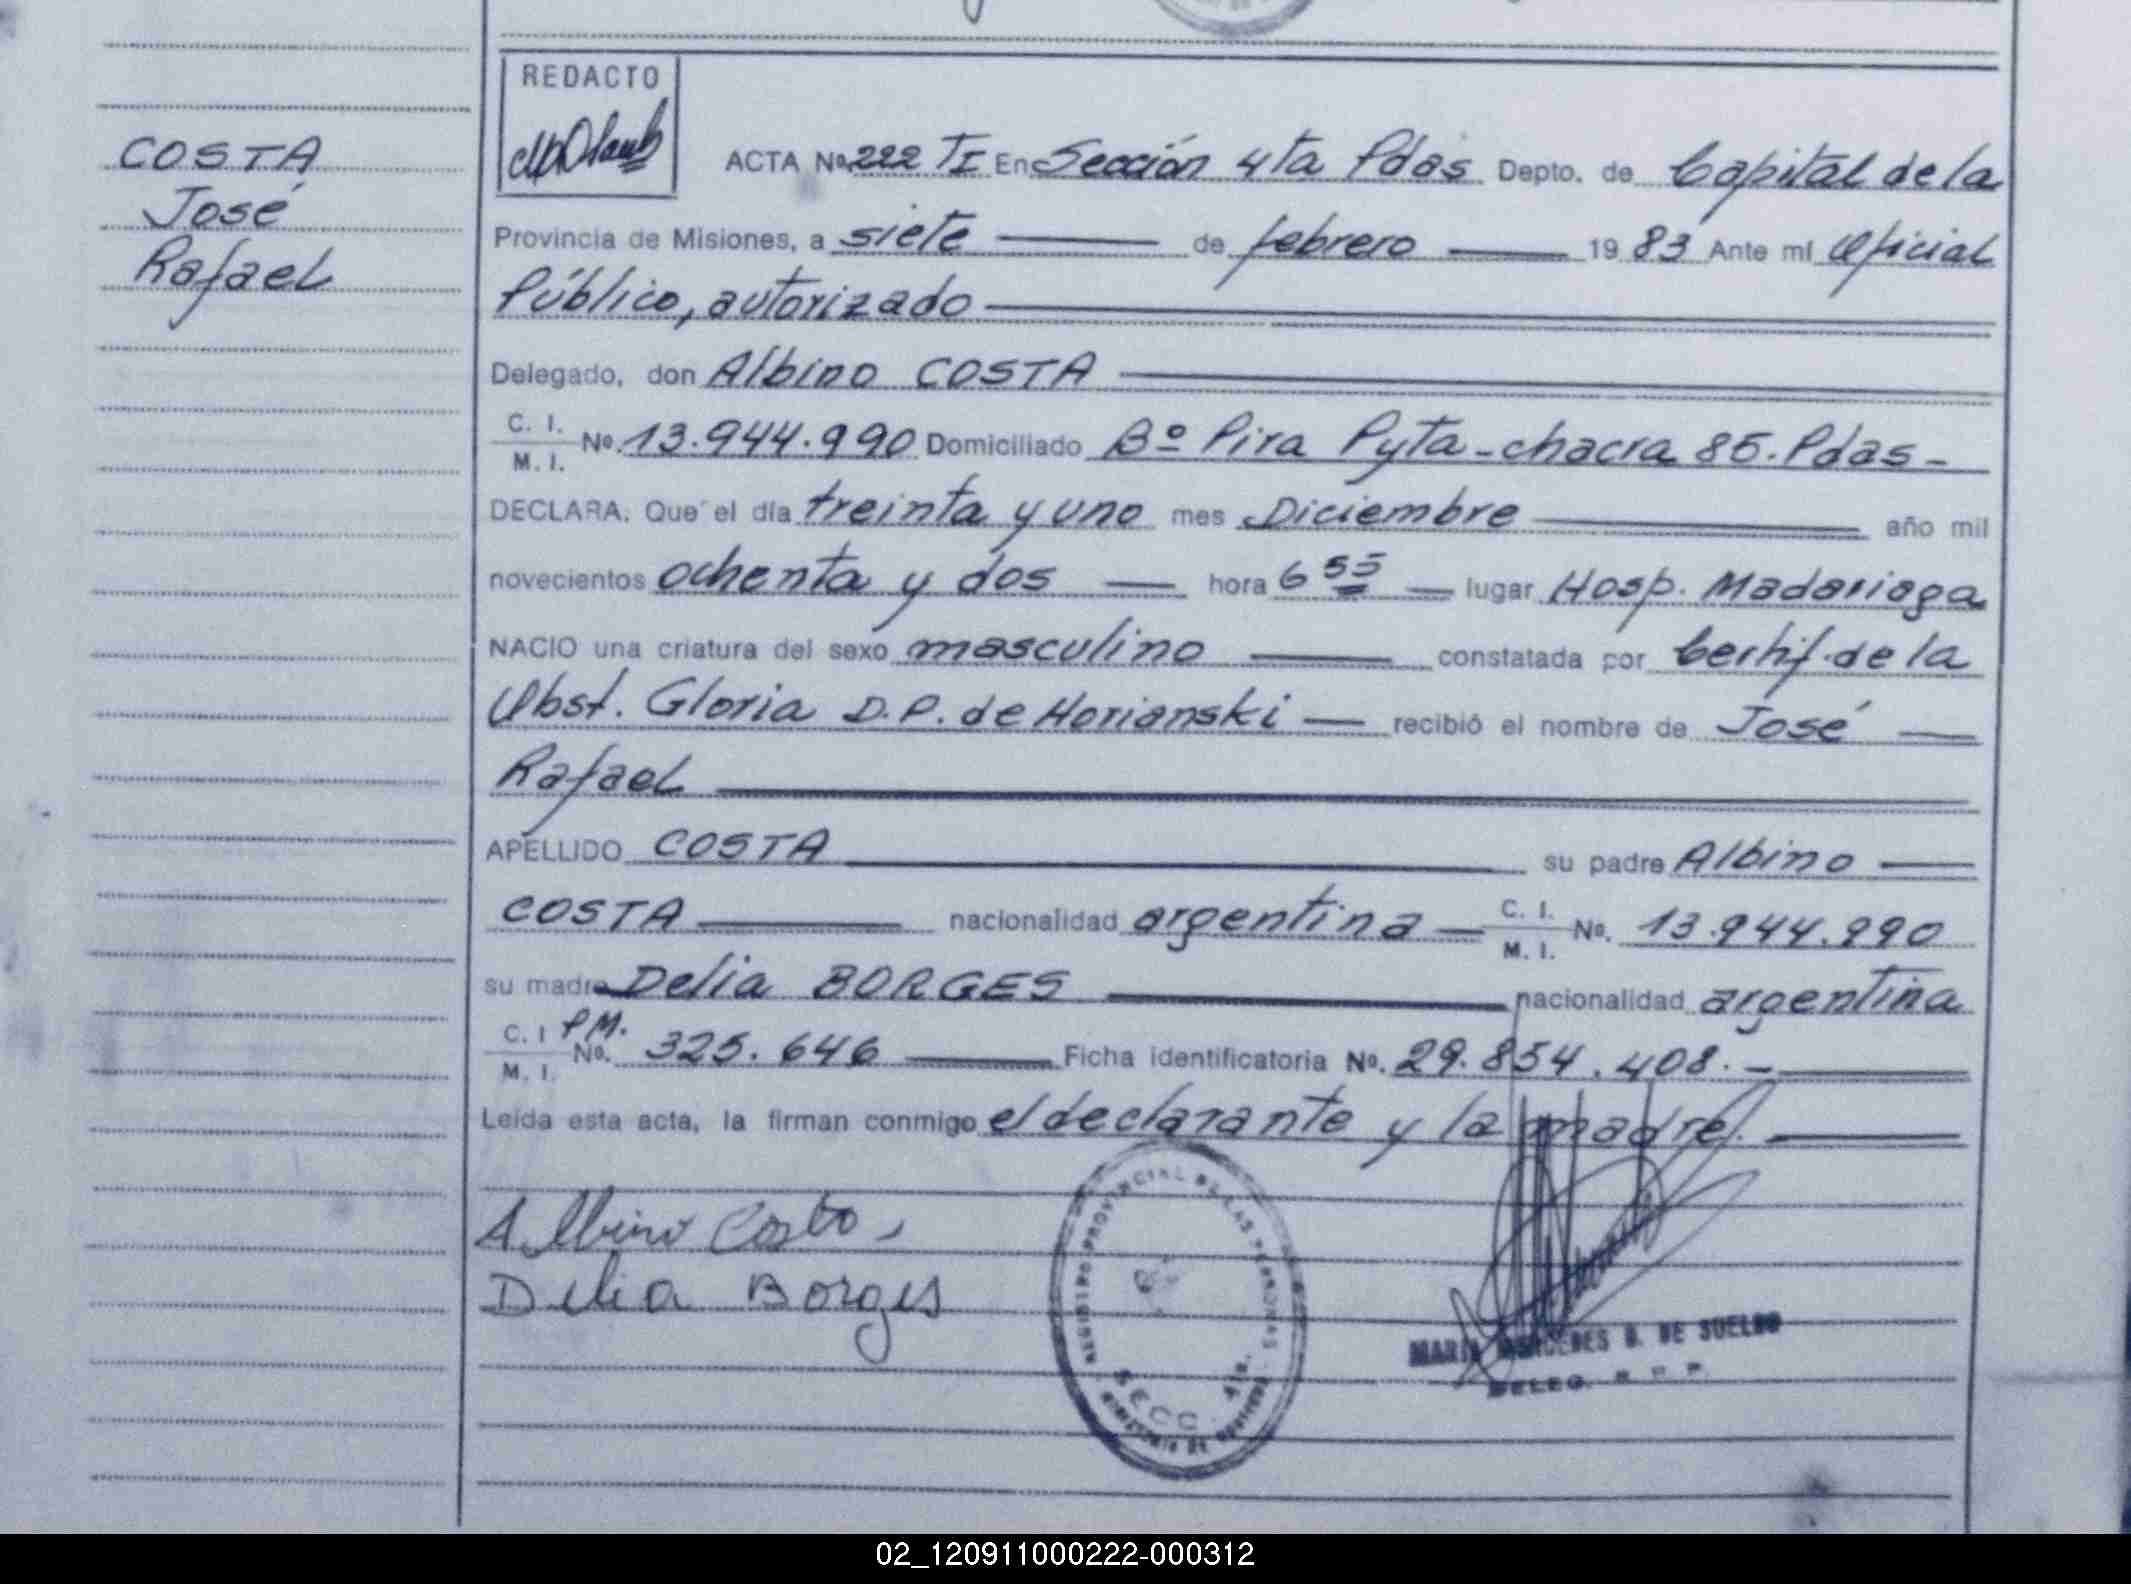 COSTA
José
Rafael
REDACTO
ACTA Nº 222 TI En Sección 4ta Pdas Depto. de Capital de la
Provincia de Misiones, a siete de febrero 1983 Ante mí Oficial
Público, autorizado
Delegado, don Albino COSTA
C. I.
M. I. Nº. 13.944.990 Domiciliado Bº Pira Pyta - chacra 85. Pdas -
DECLARA. Que el día treinta y uno mes Diciembre año mil
novecientos ochenta y dos hora 6 55 lugar Hosp. Madariaga
NACIO una criatura del sexo masculino constatada por Certif. de la
Obst. Gloria D.P. de Horianski recibió el nombre de José
Rafael
APELLIDO COSTA su padre Albino
COSTA nacionalidad argentina C. I.
M. I. Nº. 13.944.990
su madre Delia BORGES nacionalidad argentina
C. I PM.
M. I. Nº. 325.646 Ficha identificatoria Nº. 29.854.408. -
Leida esta acta, la firman conmigo el declarante y la madre.
Albino Costa
Delia Borges
REGISTRO PROVINCIAL DE LAS PERSONAS
SECC. 4ta.
MARIA MERCEDES B. DE SUELDO
DELEG. R. P. P.
02_120911000222-000312